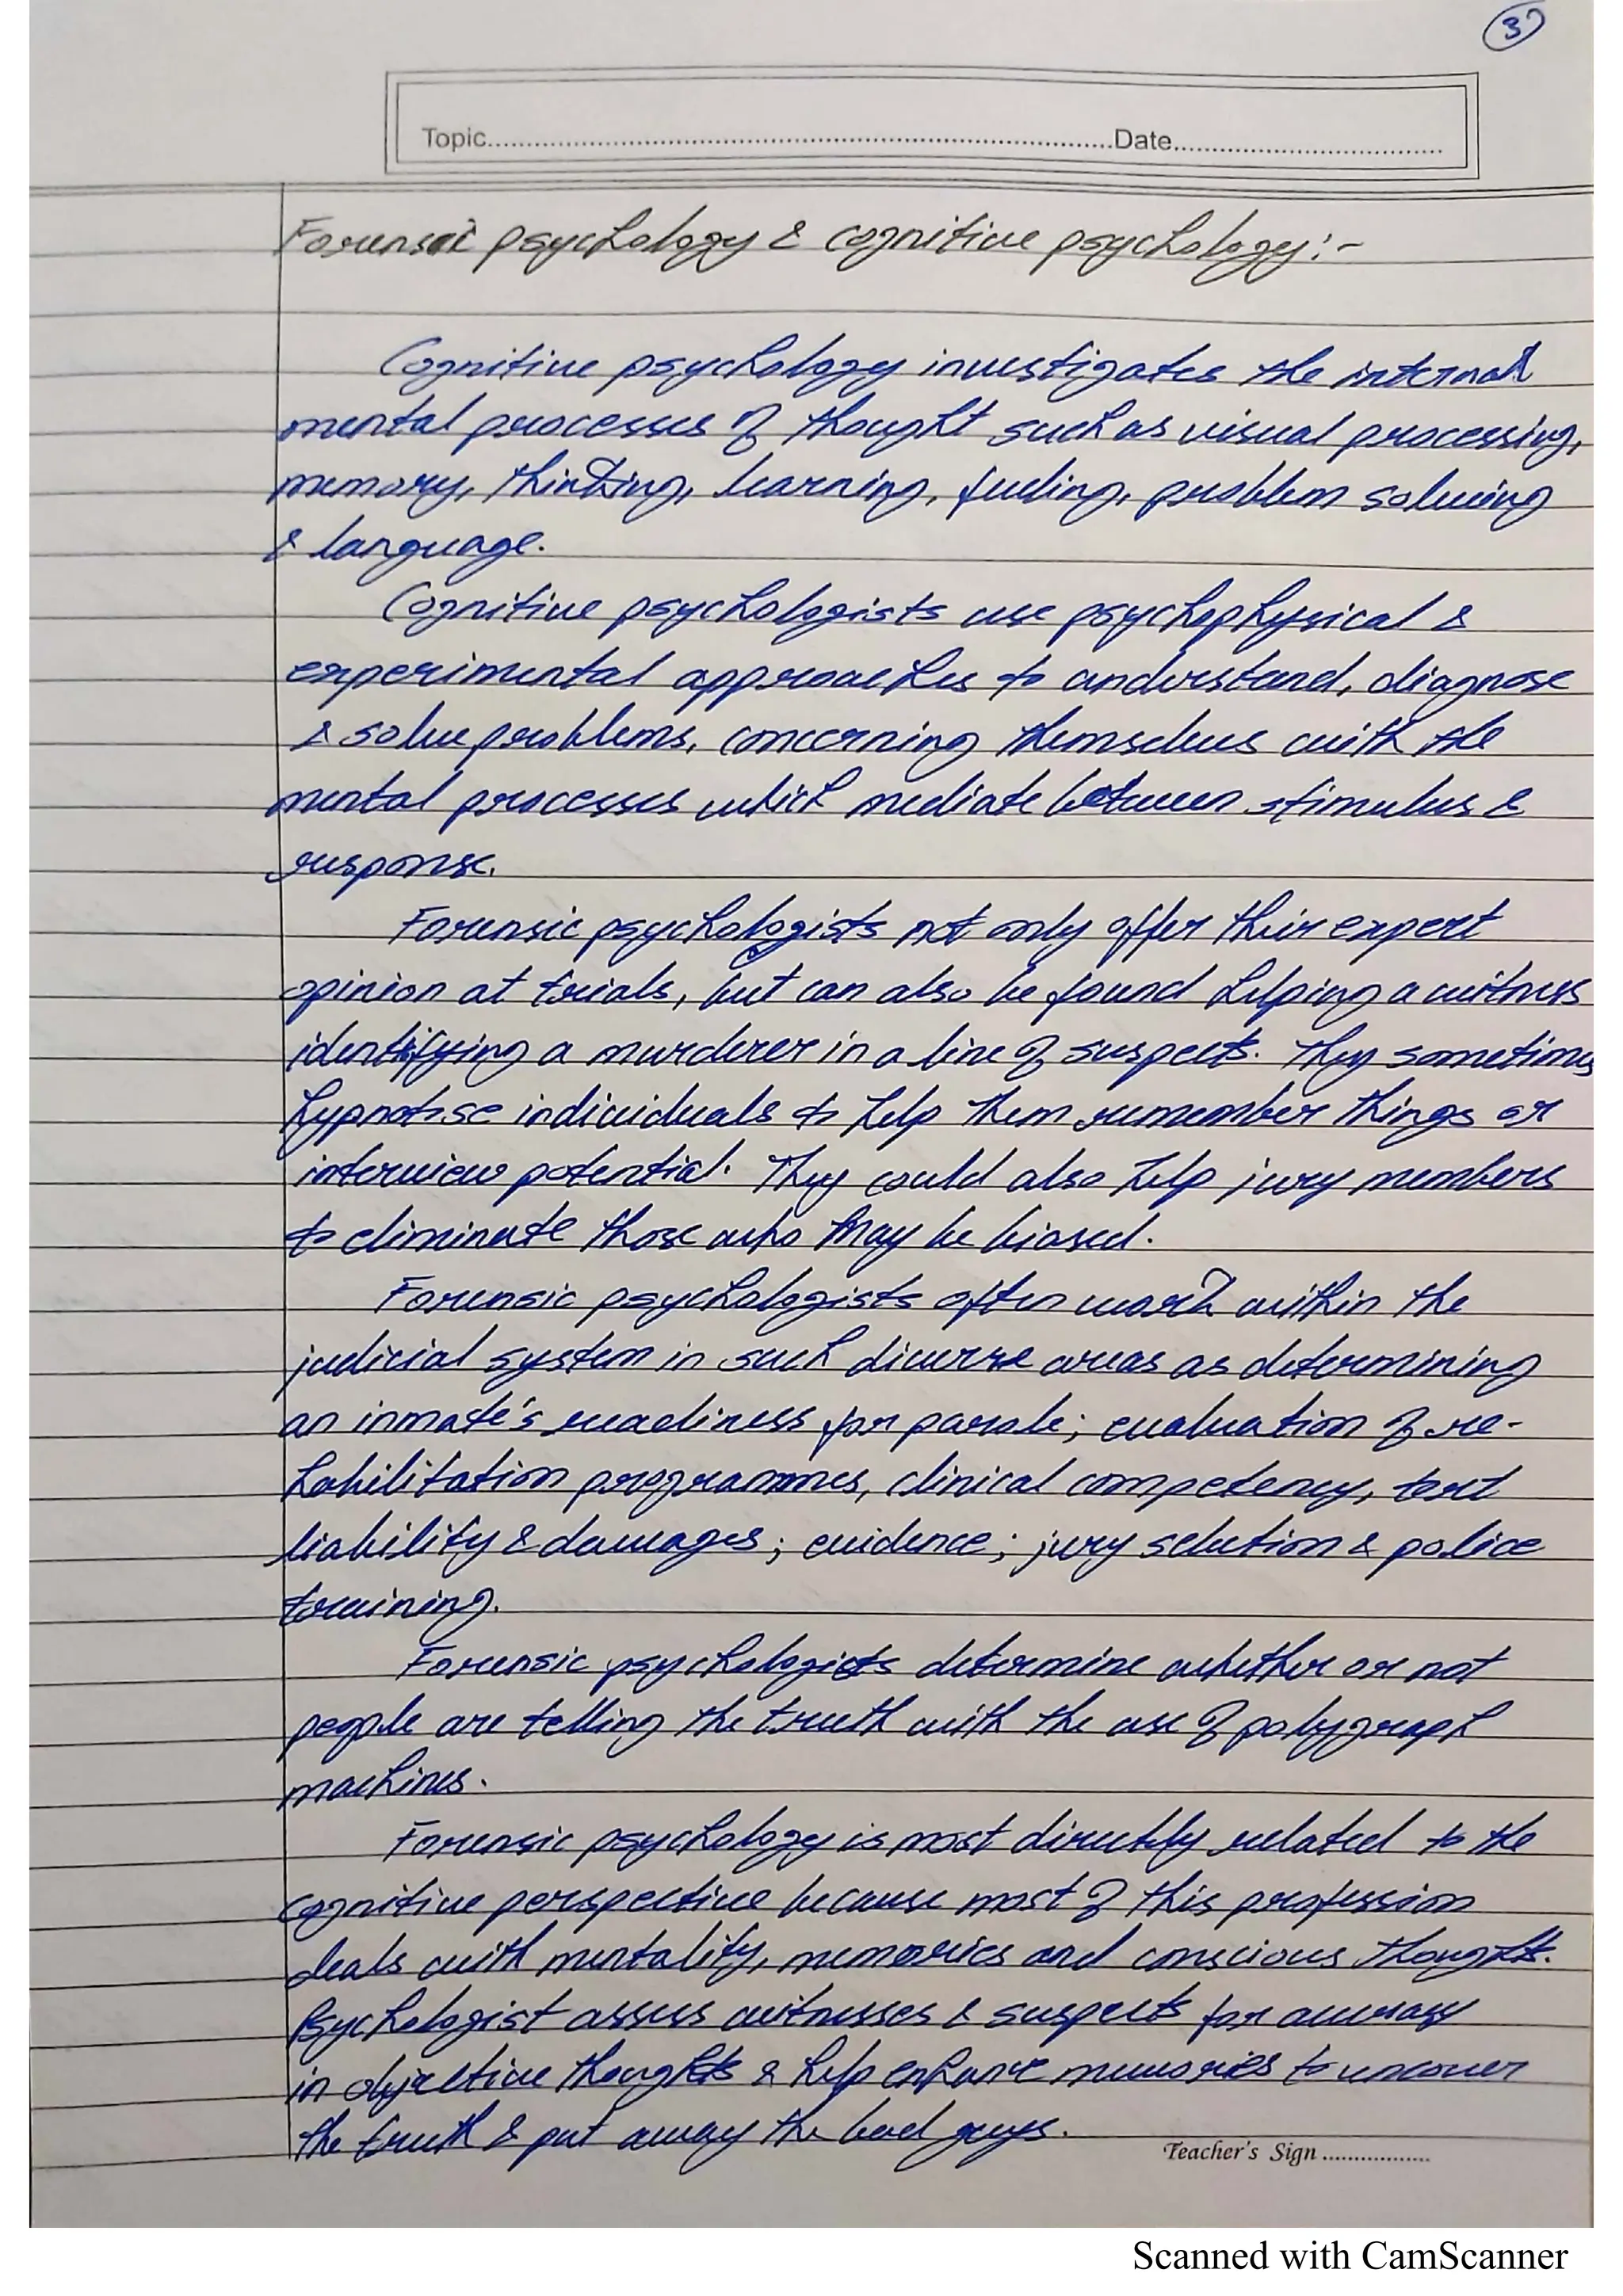 3
Topic..........Date..........
Forensic psychology & cognitive psychology:-
Cognitive psychology investigates the internal
mental processes of thought such as visual processing,
memory, thinking, learning, feeling, problem solving
& language.
Cognitive psychologists use psychophysical &
experimental approaches to understand, diagnose
& solve problems, concerning themselves with the
mental processes which mediate between stimulus &
response.
Forensic psychologists not only offer their expert
opinion at trials, but can also be found helping a witness
identifying a murderer in a line of suspects. They sometimes
hypnotise individuals to help them remember things or
interview potential. They could also help jury members
to eliminate those who may be biased.
Forensic psychologists often work within the
judicial system in such diverse areas as determining
an inmate's readiness for parole; evaluation of re-
habilitation programmes, clinical competency, tort
liability & damages; evidence; jury selection & police
training.
Forensic psychologists determine whether or not
people are telling the truth with the use of polygraph
machines.
Forensic psychology is most directly related to the
cognitive perspective because most of this profession
deals with mentality, memories and conscious thought.
Psychologist assess witnesses & suspects for accuracy
in objective thoughts & help enhance memories to uncover
the truth & put away the bad guys.
Teacher's Sign ..................
Scanned with CamScanner